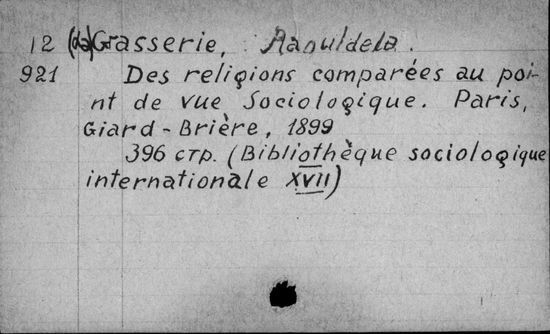 12 (da) Grasserie, Raouldela.
921 Des religions comparées au poi-
nt de vue Sociologique. Paris,
Giard-Brière, 1899
396 стр. (Bibliothèque sociologique
internationale XVII)